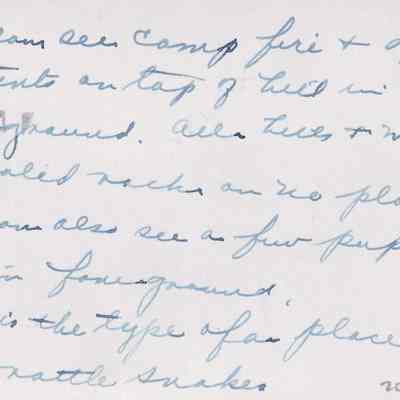 can see camp fire +
tents on top of hill in
ground. All hills +
rocks on no pla
can also see a few pup
in foreground.
is the type of a place
rattle snakes